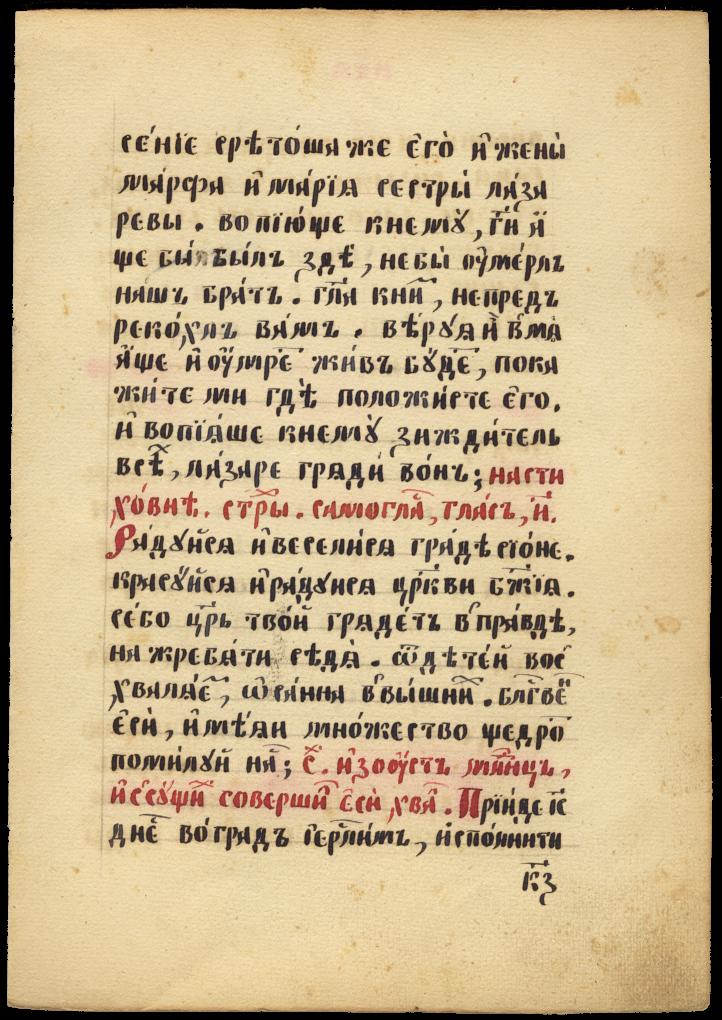 се́нїе срѣто́ша же є҆го̀ и҆ жены̀
ма́рѳа и҆ марі́ѧ сестры̀ ла́за
ревы . вопїю́ще к̾нему̀, гдⷭ҇и а҆́
ще бы̀ бы́лъ здѣ̀, не бы̀ ᲂу҆ме́рлъ
на́шъ бра́тъ . гл҃ѧ к̾ни́мъ, не пред̾
реко́хъ ва́мъ . вѣ́руѧй в̾ мѧ̀
а҆́ще и҆ ᲂу҆́мре жи́въ бу́де, пока
жи́те ми гдѣ̀ положи́сте є҆го̀.
и҆ вопїѧ́ше к̾нему̀ зижди́тель
все́, ла́заре грѧдѝ во́нъ; на сти
хо́внѣ. стх҃ры. самогла́, гла́съ, и҃.
Ра́дуйсѧ и҆ весели́сѧ гра́де сїо́не.
красу́йсѧ и҆ ра́дуисѧ цр҃кви бж҃їѧ.
се́бо цр҃ь тво́й грѧде́тъ в̾ пра́вдѣ,
на жребѧ́ти сѣдѧ̀. ѿ дѣте́й вос
хвалѧ́є, ѡ҆са́нна в̾ вы́шни. блгⷭ҇ве́
є҆сѝ, и҆мѣ́ѧи мно́жество щедро́
поми́луй на́; с. и҆з̾ ᲂу҆́стъ млⷣнцъ,
и҆ ссу́щи соверши́ є҆сѝ хва. Прїи́де і҆с
дне́ во гра́дъ і҆ерⷭ҇лимъ, и҆спо́лнити
к҃з